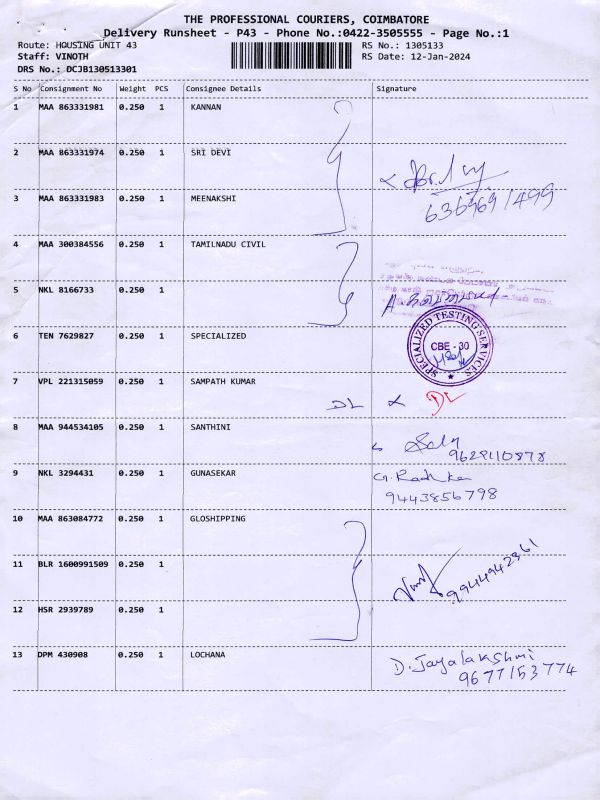 THE PROFESSIONAL COURIERS, COIMBATORE
Delivery Runsheet - P43 - Phone No.:0422-3505555 - Page No.:1
Route: HOUSING UNIT 43 RS No.: 1305133
Staff: VINOTH RS Date: 12-Jan-2024
DRS No.: DCJB130513301
S No Consignment No Weight PCS Consignee Details Signature
1 MAA 863331981 0.250 1 KANNAN
2 MAA 863331974 0.250 1 SRI DEVI
3 MAA 863331983 0.250 1 MEENAKSHI
4 MAA 300384556 0.250 1 TAMILNADU CIVIL
5 NKL 8166733 0.250 1
6 TEN 7629827 0.250 1 SPECIALIZED
SPECIALIZED TESTING SERVICES
CBE - 30
7 VPL 221315059 0.250 1 SAMPATH KUMAR
DL DL
8 MAA 944534105 0.250 1 SANTHINI
9629110878
9 NKL 3294431 0.250 1 GUNASEKAR
9443856798
10 MAA 863084772 0.250 1 GLOSHIPPING
11 BLR 1600991509 0.250 1
9944942361
12 HSR 2939789 0.250 1
13 DPM 430908 0.250 1 LOCHANA
D. Jayalakshmi
9677153774